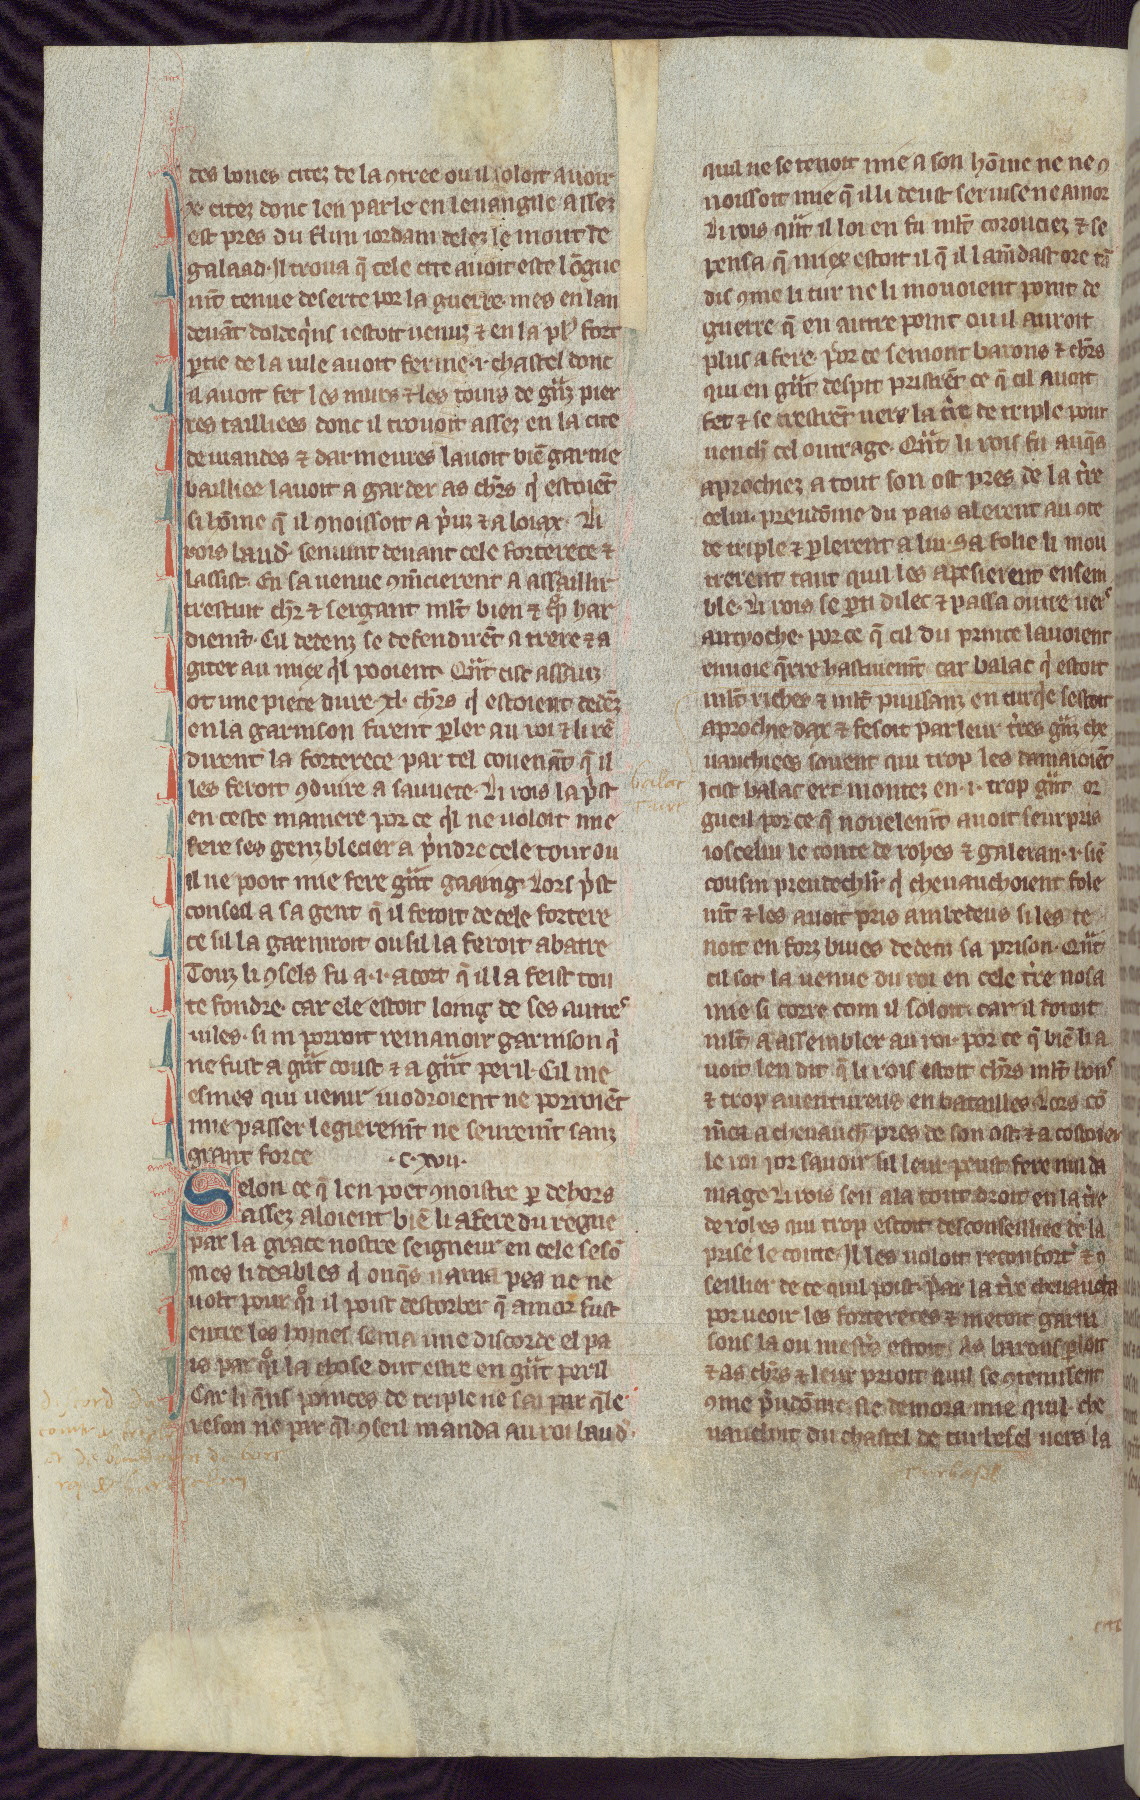 des bones citez de la ꝯtree ou il soloit auoir
.x. citez donc len parle en leuangile assez
est pres du flun iordain delez le mont de
galaad. Il troua q̃ cele cite auoit este lõgue
mẽt tenue deserte por la guerre. mes en lan
deuãt doldeq̾ns iestoit uenuz ⁊ en la plꝰ fort
ꝑtie de la uile auoit ferme .i. chastel donc
il auoit fet les murs ⁊ les tours de gᷓnz pier
res tailliees donc il trouoit assez en la cite
de uiandes ⁊ darmeures lauoit biẽ garnie
baillier lauoit a garder as chr̃s q̾ estoiẽt
si hõme q̃ il ꝯnoissoit a p̾uz ⁊ a loiax. Li
rois baud̾. senuint deuant cele forterece ⁊
lassist. En sa uenue ꝯmẽcierent a assaillir
trestuit chr̃ ⁊ sergant ml̃t bien ⁊ ml̃t har
diemẽt. Cil dedenz se defendirẽt a trere ⁊ a
giter au miex q̾l pooient. Qᷓnt cist assauz
ot une piece dure .xl. chr̃s q̾ estoient dedẽz
en la garnison firent ꝑler au roi ⁊ li rẽ
dirent la forterece par tel couenãt q̃ il
les feroit ꝯduire a sauuete. Li rois la p̾st
en ceste maniere por ce q̾l ne uoloit mie
fere ses genz blecier a p̾ndre cele tour ou
il ne pooit mie fere gᷓnt gaaing. Lors p̾st
conseil a sa gent q̃ il feroit de cele fortere
ce sil la garniroit ou sil la feroit abatre
Touz li ꝯsels fu a .i. acort q̃ il la feist tou
te fondre. car ele estoit loing de ses autreˢ
uiles. si ni porroit remanoir garnison q̾
ne fust a gᷓnt coust ⁊ a gᷓnt peril. Cil me
esmes qui uenir iuodroient ne porroiẽt
mie passer legieremẽt ne seuremẽt sanz
grant force .c. xvii.
Selon ce q̃ len poet ꝯnoistre ꝑ dehors
assez aloient biẽ li afere du regne
par la grace nostre seigneur en cele sesõ
mes li deables q̾ onq̃s nama pes ne ne
uolt pour qͦi il poist destorber q̃ amor fust
entre les homes sema une discorde el pa
is par qͦi la chose dut estre en gᷓnt peril
Car li q̃ns ponces de triple ne sai par q̃le
reson ne par q̃l ꝯseil manda au roi baud̾.
quil ne se tenoit mie a son hõme ne ne ꝯ
noissoit mie q̃ il li deust seruise ne amor
Li rois qᷓnt il loi en fu ml̃t corouciez ⁊ se
pensa q̃ miex estoit il q̃ il lamẽdast ore tã
dis ꝯme li tur ne li mouoient point de
guerre q̃ en autre point ou il auroit
plus a fere. Por ce semont barons ⁊ chr̃s
qui en gᷓnt despit pristrẽt ce q̃ cil auoit
fet ⁊ se trestrẽt uers la tr̃e de triple pour
uench̾ cel outrage. Qᷓnt li rois fu auq̃s
aprochiez a tout son ost pres de la tr̃e
celui. preudõme du pais alerent au ꝯte
de triple ⁊ ꝑlerent a lui. sa folie li mou
trerent tant quil les apesierent ensem
ble. Li rois se ꝑti dilec ⁊ passa outre uerˢ
antyoche. por ce q̃ cil du prince lauoient
enuoie q̃rre hastiuemẽt. car balac q̾ estoit
ml̃t riches ⁊ ml̃t puissanz en turq̾e sestoit
aprochie dax ⁊ fesoit par leur tr̃es gᷓnz che
uauchiees souent qui trop les damaioiẽt
Icist balac ert montez en .i. trop gᷓnt or
gueil por ce q̃ nouelemẽt auoit seurpris
ioscelin le conte de rohes ⁊ galeran .i. siẽ
cousin preudechlr̃ q̾ cheuauchoient fole
mẽt ⁊ les auoit pris ambedeus si les te
noit en forz buies dedenz sa prison. Qᷓnt
cil sot la uenue du roi en cele tr̃e nosa
mie si corre com il soloit. car il dotoit
ml̃t a assembler au roi. por ce q̃ biẽ li a
uoit len dit q̃ li rois estoit chr̃s ml̃t bonˢ
⁊ trop auentureus en batailles. Lors cõ
mẽca a cheuauch̾ pres de son ost ⁊ a costoier
le roi por sauoir sil leur peust fere nul da
mage. Li rois sen ala tout droit en la tr̃e
de rohes qui trop estoit desconseilliee de la
prise le conte. Il les uoloit reconfort̾ ⁊ ꝯ
seillier de ce quil poist. Par la tr̃e cheuaucha
por ueoir les forterèces ⁊ metoit garni
sons la ou mest̾s estoit. As barons ꝑloit
⁊ as chr̃s ⁊ leur prioit quil se ꝯtenissent
ꝯme p̾udõme. Ne demora mie quil che
uauchoit du chastel de turbesel uers la
turbasel